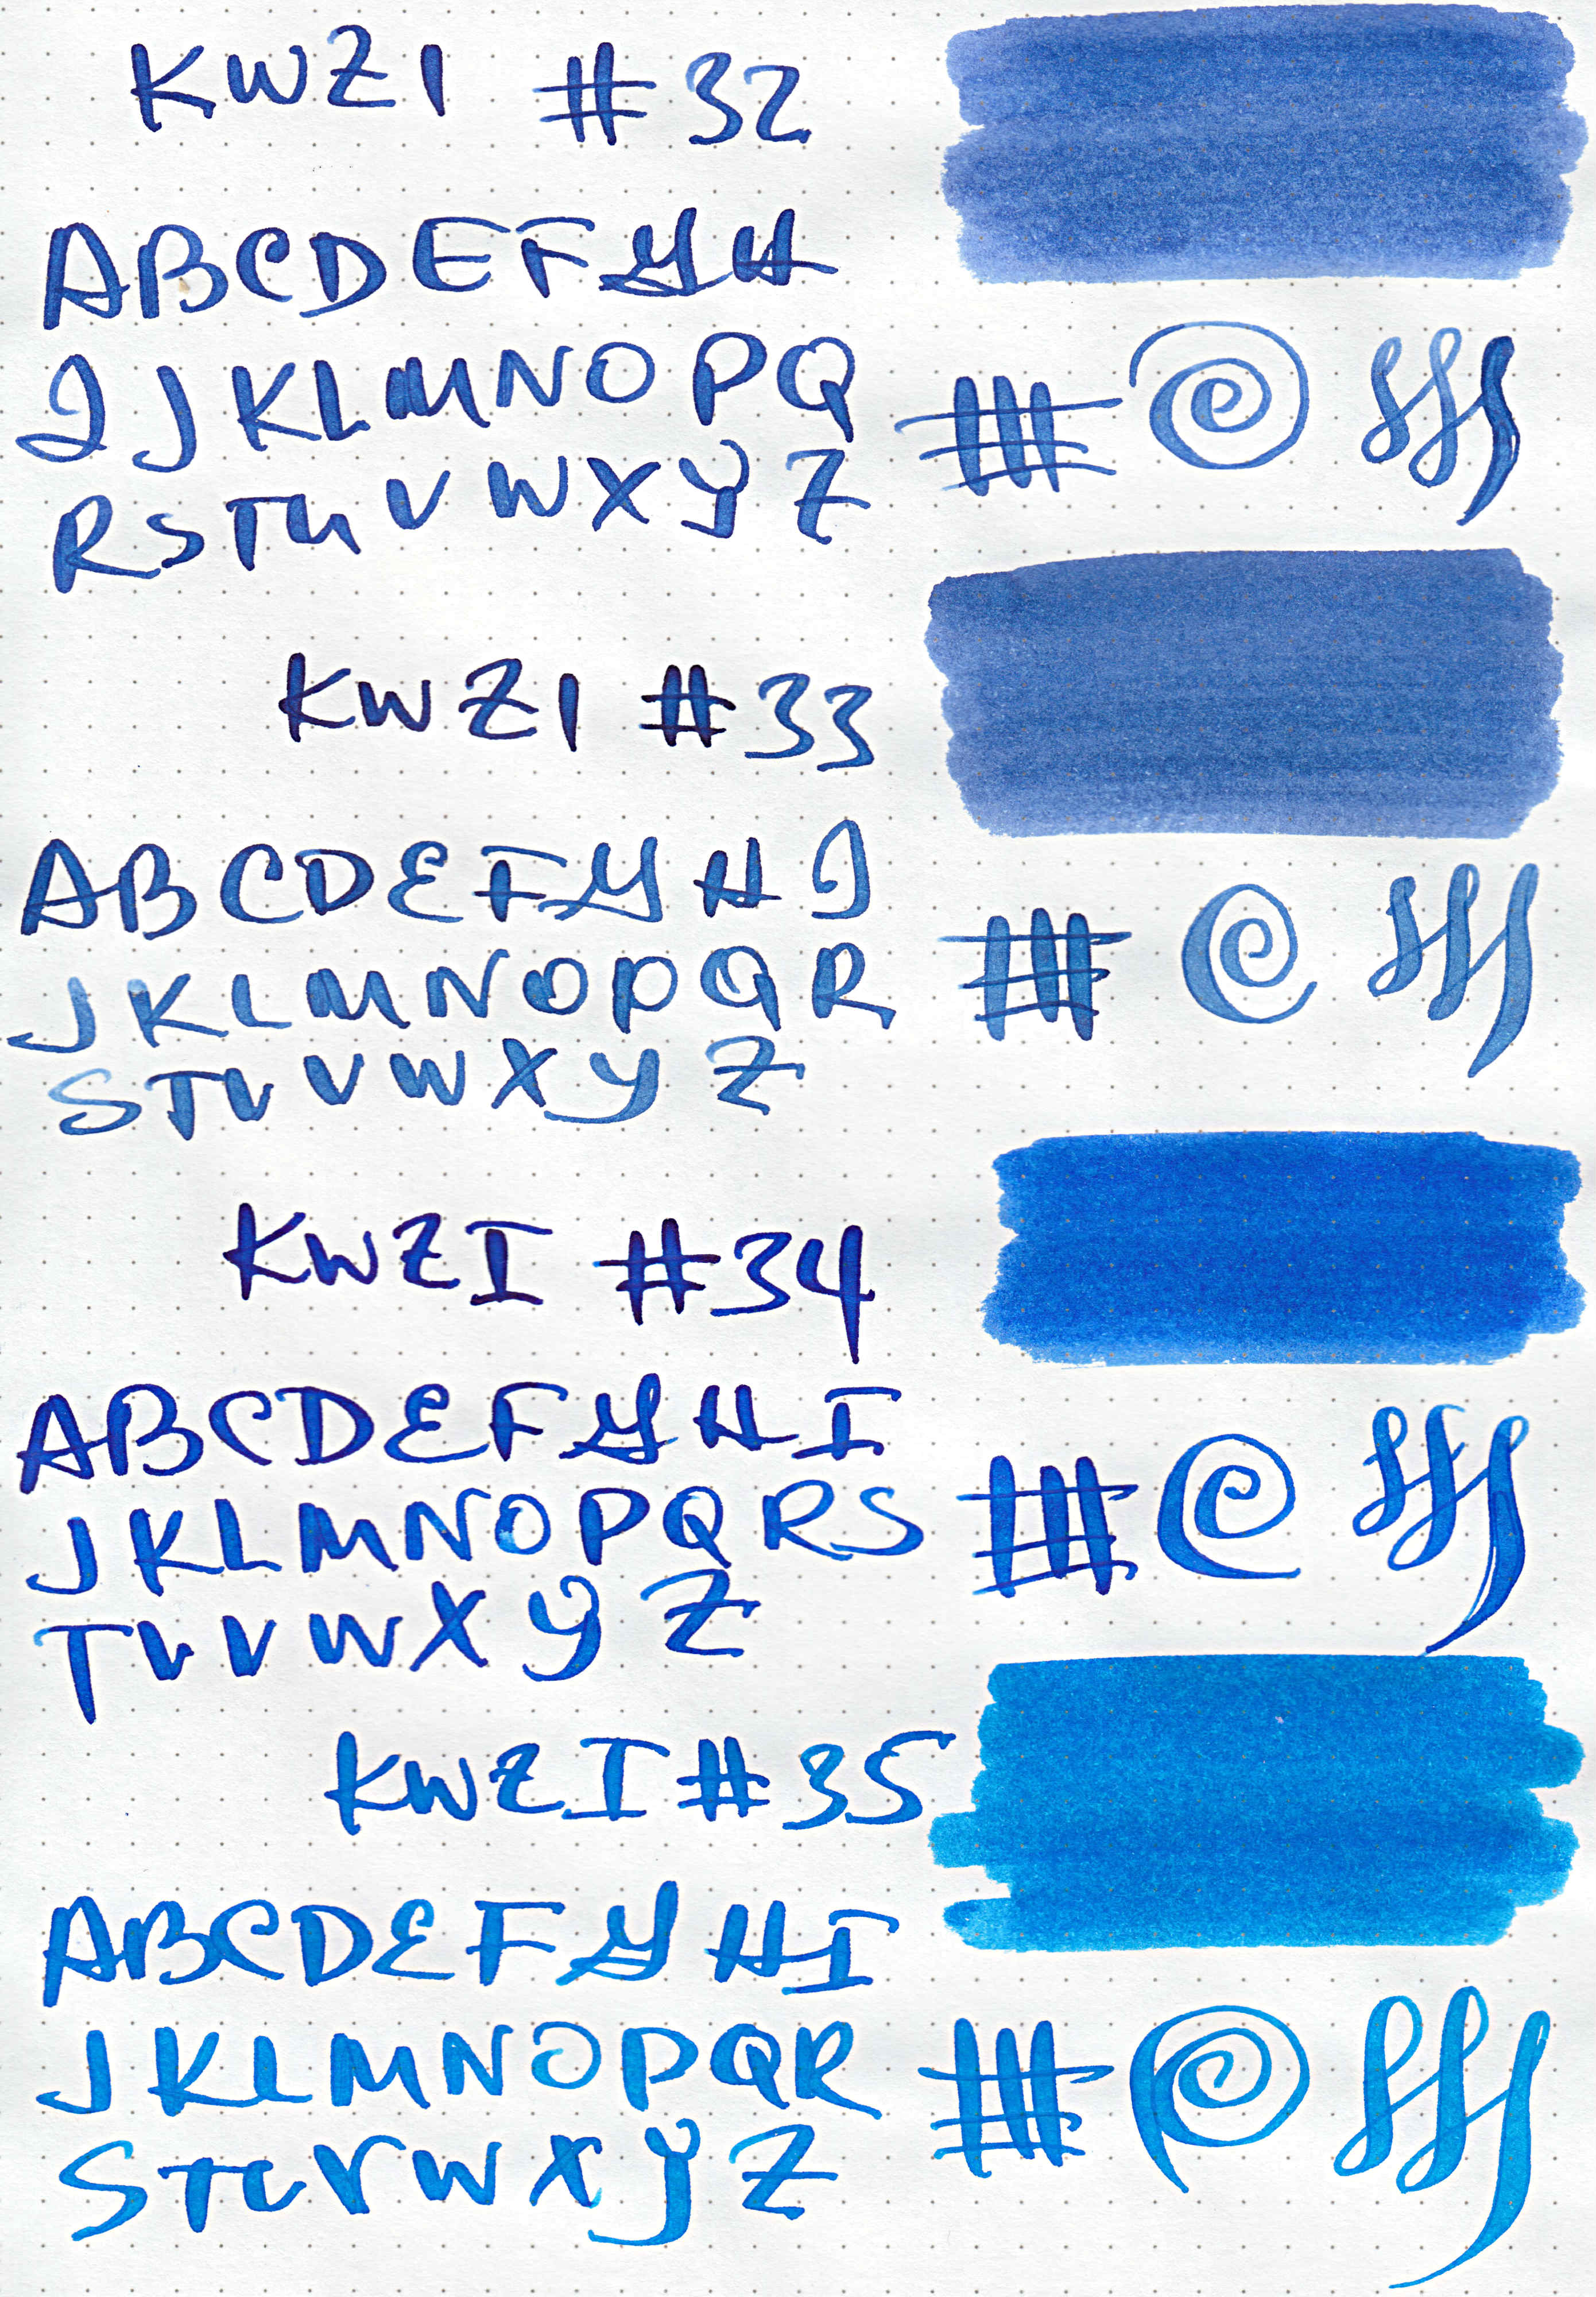 KWZI #32
ABCDEFGH
IJKLMNOPQ
RSTUVWXYZ
KWZI #33
ABCDEFGHI
JKLMNOPQR
STUVWXYZ
KWZI #34
ABCDEFGHI
JKLMNOPQRS
TUVWXYZ
KWZI #35
ABCDEFGHI
JKLMNOPQR
STUVWXYZ